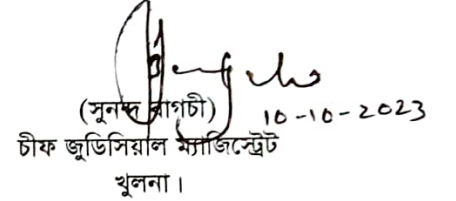 (সুনন্দ বাগচী) 10-10-2023
চীফ জুডিসিয়াল ম্যাজিস্ট্রেট
খুলনা।